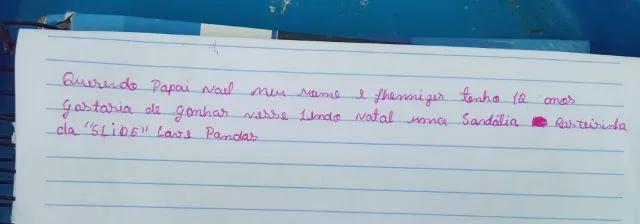 Querendo Papai Noel meu nome e Jhennizer tenho 12 anos
gostaria de ganhar nesse Lindo Natal uma Sandália Rasteirinha
da "SLiDE" Love Pandas